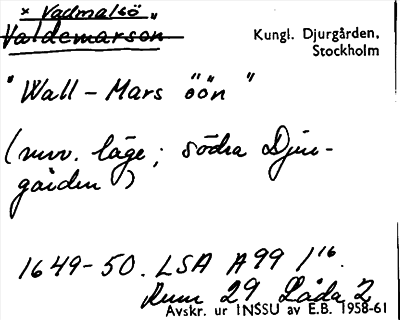 × Vadmalsö"
Valdemarson
Kungl. Djurgården,
Stockholm
"Wall-Mars öön"
(nuv. läge; södra Djur-
gården)
1649-50. LSA A99 1¹⁶.
Rum 29 Låda 2
Avskr. ur INSSU av E.B. 1958-61